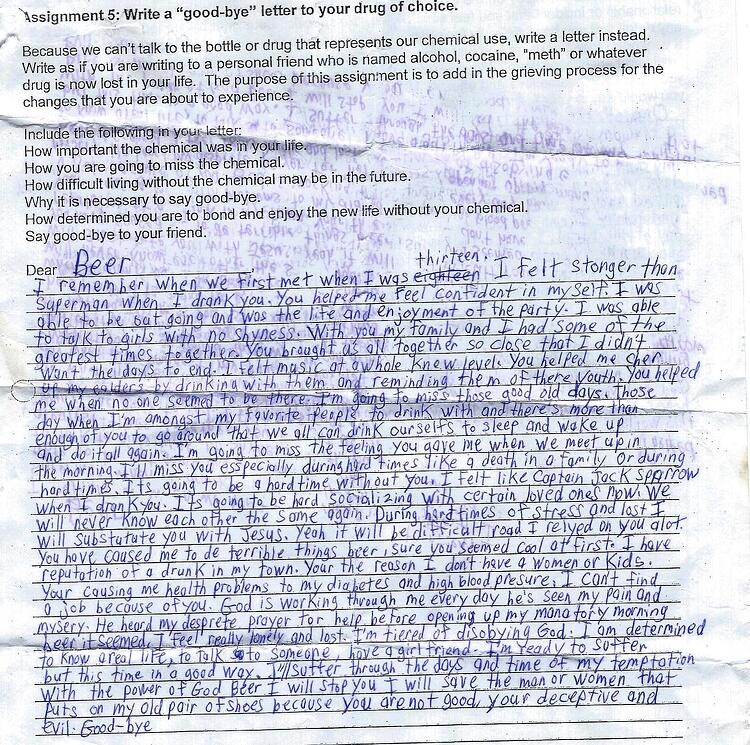 Assignment 5: Write a "good-bye" letter to your drug of choice.
Because we can't talk to the bottle or drug that represents our chemical use, write a letter instead.
Write as if you are writing to a personal friend who is named alcohol, cocaine, "meth" or whatever
drug is now lost in your life. The purpose of this assignment is to add in the grieving process for the
changes that you are about to experience.
Include the following in your letter:
How important the chemical was in your life.
How you are going to miss the chemical.
How difficult living without the chemical may be in the future.
Why it is necessary to say good-bye.
How determined you are to bond and enjoy the new life without your chemical.
Say good-bye to your friend.
Dear Beer
I remember when we first met when I was eighteen thirteen. I felt stonger than
Superman when I drank you. You helped me feel confident in my self. I was
able to be out going and was the life and enjoyment of the party. I was able
to talk to girls with no shyness. With you my family and I had some of the
greatest times together. You brought as all together so close that I didn't
want the days to end. I felt music at a whole knew level. You helped me cher
up my ealders by drinking with them and reminding them of there youth. You helped
me when no one seemed to be there. I'm going to miss those good old days. Those
day when I'm amongst my favorite people to drink with and there's more than
enough of you to go around that we all can drink ourselfs to sleep and wake up
and do it all again. I'm going to miss the feeling you gave me when we meet up in
the morning. I'll miss you esspecially during hard times like a death in a family or during
hard times. Its going to be a hard time without you. I felt like Captain Jack Sparrow
when I drank you. Its going to be hard socializing with certain loved ones now. We
will never know each other the same again. During hard times of stress and lost I
will substatute you with Jesus. Yeah it will be difficult road I relyed on you alot.
You have caused me to de terrible things beer, sure you seemed cool at first. I have
reputation of a drunk in my town. Your the reason I don't have a women or kids.
Your causing me health problems to my diabetes and high blood presure, I can't find
a job because of you. God is working through me every day he's seen my pain and
mysery. He heard my desprete prayer for help before opening up my manatory morning
beer it seemed. I feel really lonely and lost. I'm tiered of disobying God. I am determined
to know a real life, to talk to someone, have a girlfriend. I'm ready to suffer
but this time in a good way. I'll suffer through the days and time of my temptation
with the power of God Beer I will stop you I will save the man or women that
puts on my old pair of shoes because you are not good, your deceptive and
evil. Good-bye